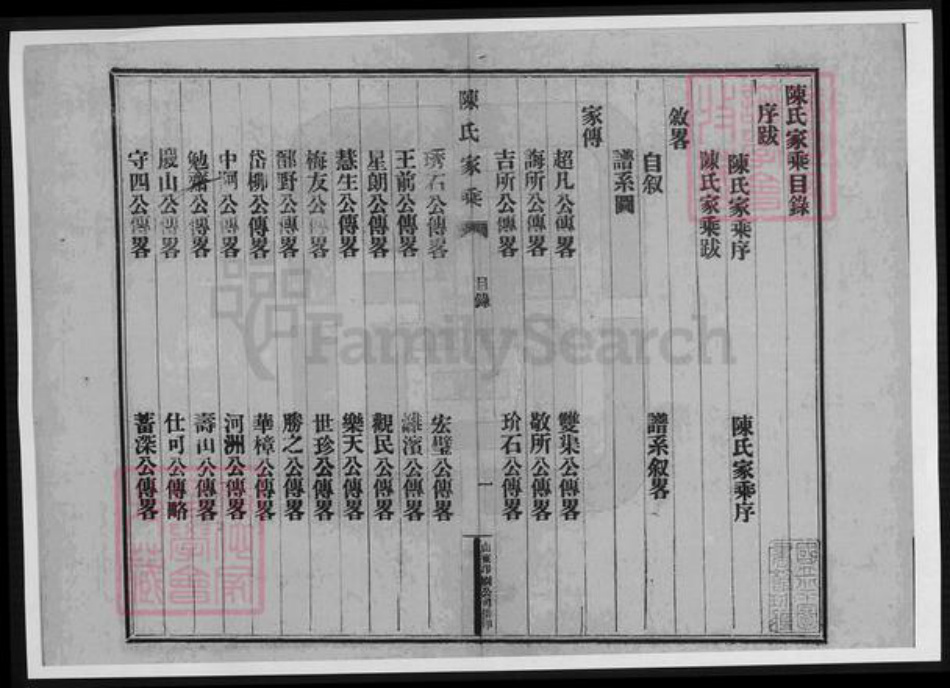 陳氏家乘目錄
序跋
陳氏家乘序 陳氏家乘序
陳氏家乘跋
敘畧
自叙 譜系叙畧
譜系圖
家傳
超凡公傳畧 雙渠公傳畧
誨所公傳畧 敬所公傳畧
吉所公傳畧 玠石公傳畧
陳氏家乘 目錄 一
石公傳畧 宏璧公傳畧
王前公傳畧 濰濱公傳畧
星朗公傳畧 觀民公傳畧
慧生公傳畧 樂天公傳畧
梅友公傳畧 世珍公傳畧
野公傳畧 勝之公傳畧
岱柳公傳畧 華樟公傳畧
中 公傳畧 河洲公傳畧
勉齋公傳畧 壽山公傳畧
巖山公傳畧 仕可公傳略
守四公傳畧 蓄深公傳畧
FamilySearch